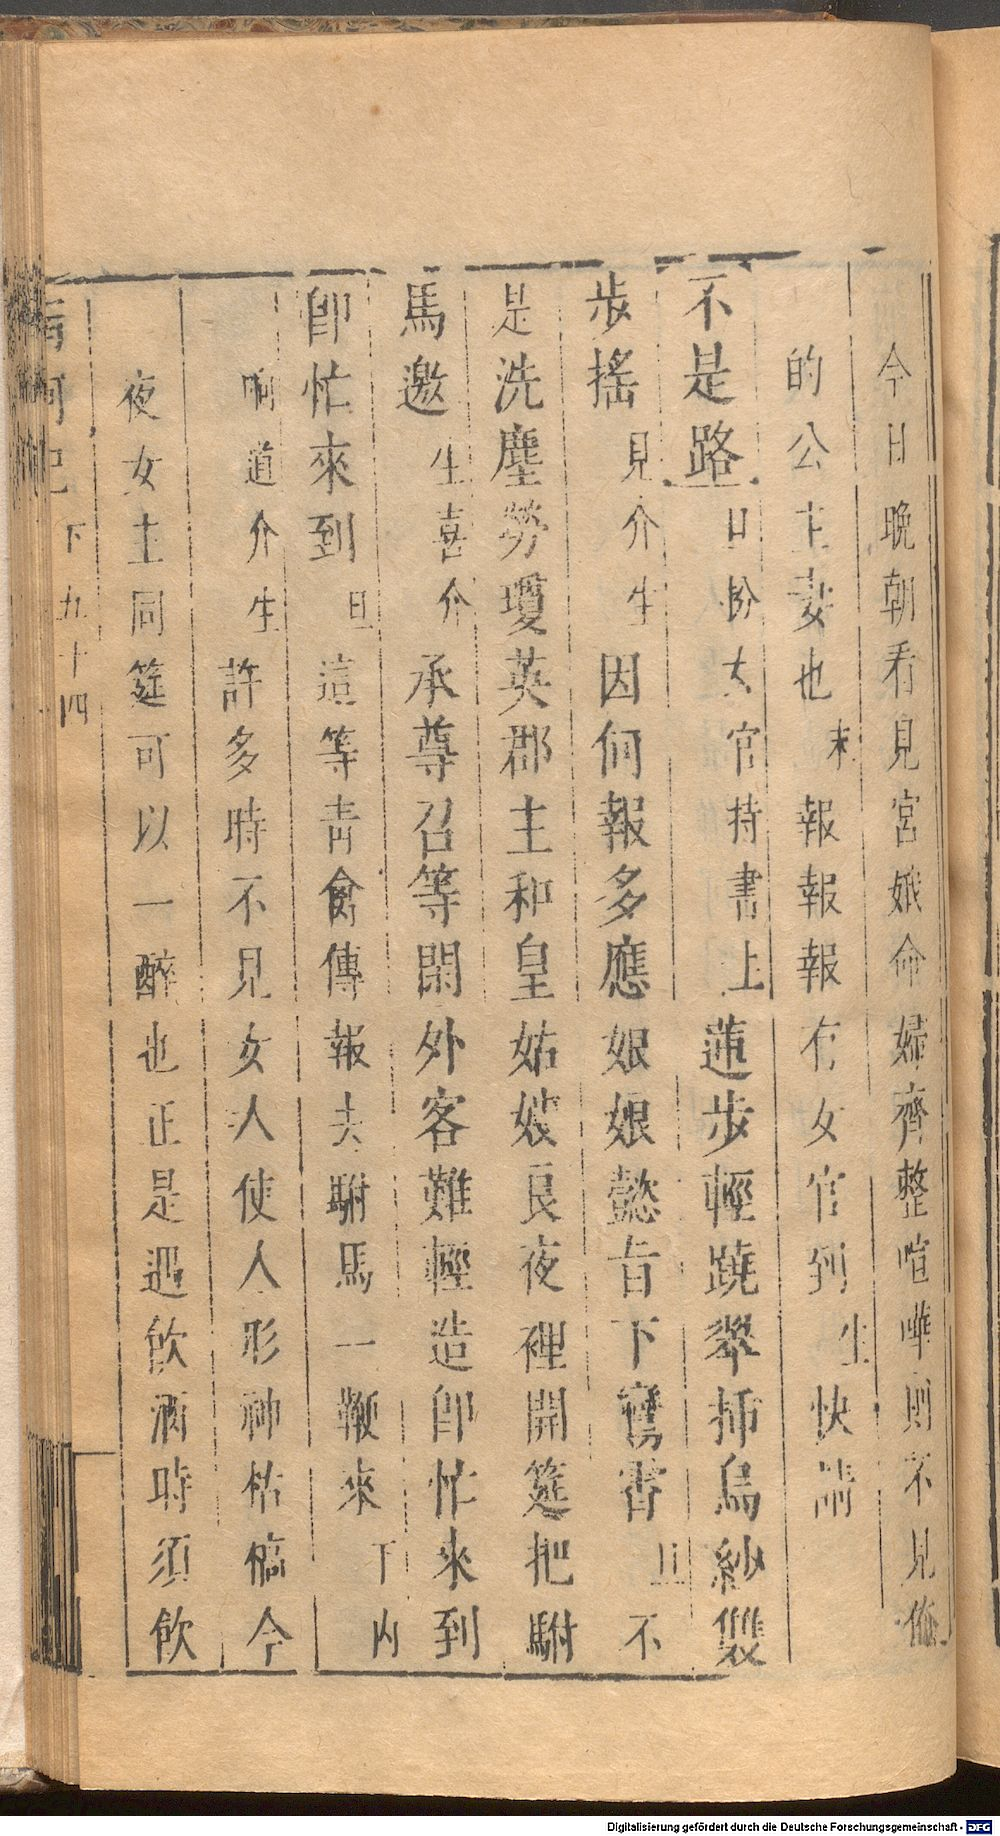 今日晚朝看見宮娥命婦齊整喧嘩則不見俺
的公主妻也末報報報有女官到生快請
不是路旦扮女官持書上蓮步輕蹺翠插烏紗雙
步搖見介生因何報多應娘娘懿旨下鸞書旦不
是洗塵勞瓊英郡主和皇姑嫂良夜裡開筵把駙
馬邀生喜介承尊召等閑外客難輕造卽忙來到
卽忙來到旦這等青禽傳報去駙馬一鞭來下內
响道介生許多時不見女人使人形神枯槁今
夜女主同筵可以一醉也正是遇飲酒時須飲
南柯記 下 九十四
Digitalisierung gefördert durch die Deutsche Forschungsgemeinschaft - DFG